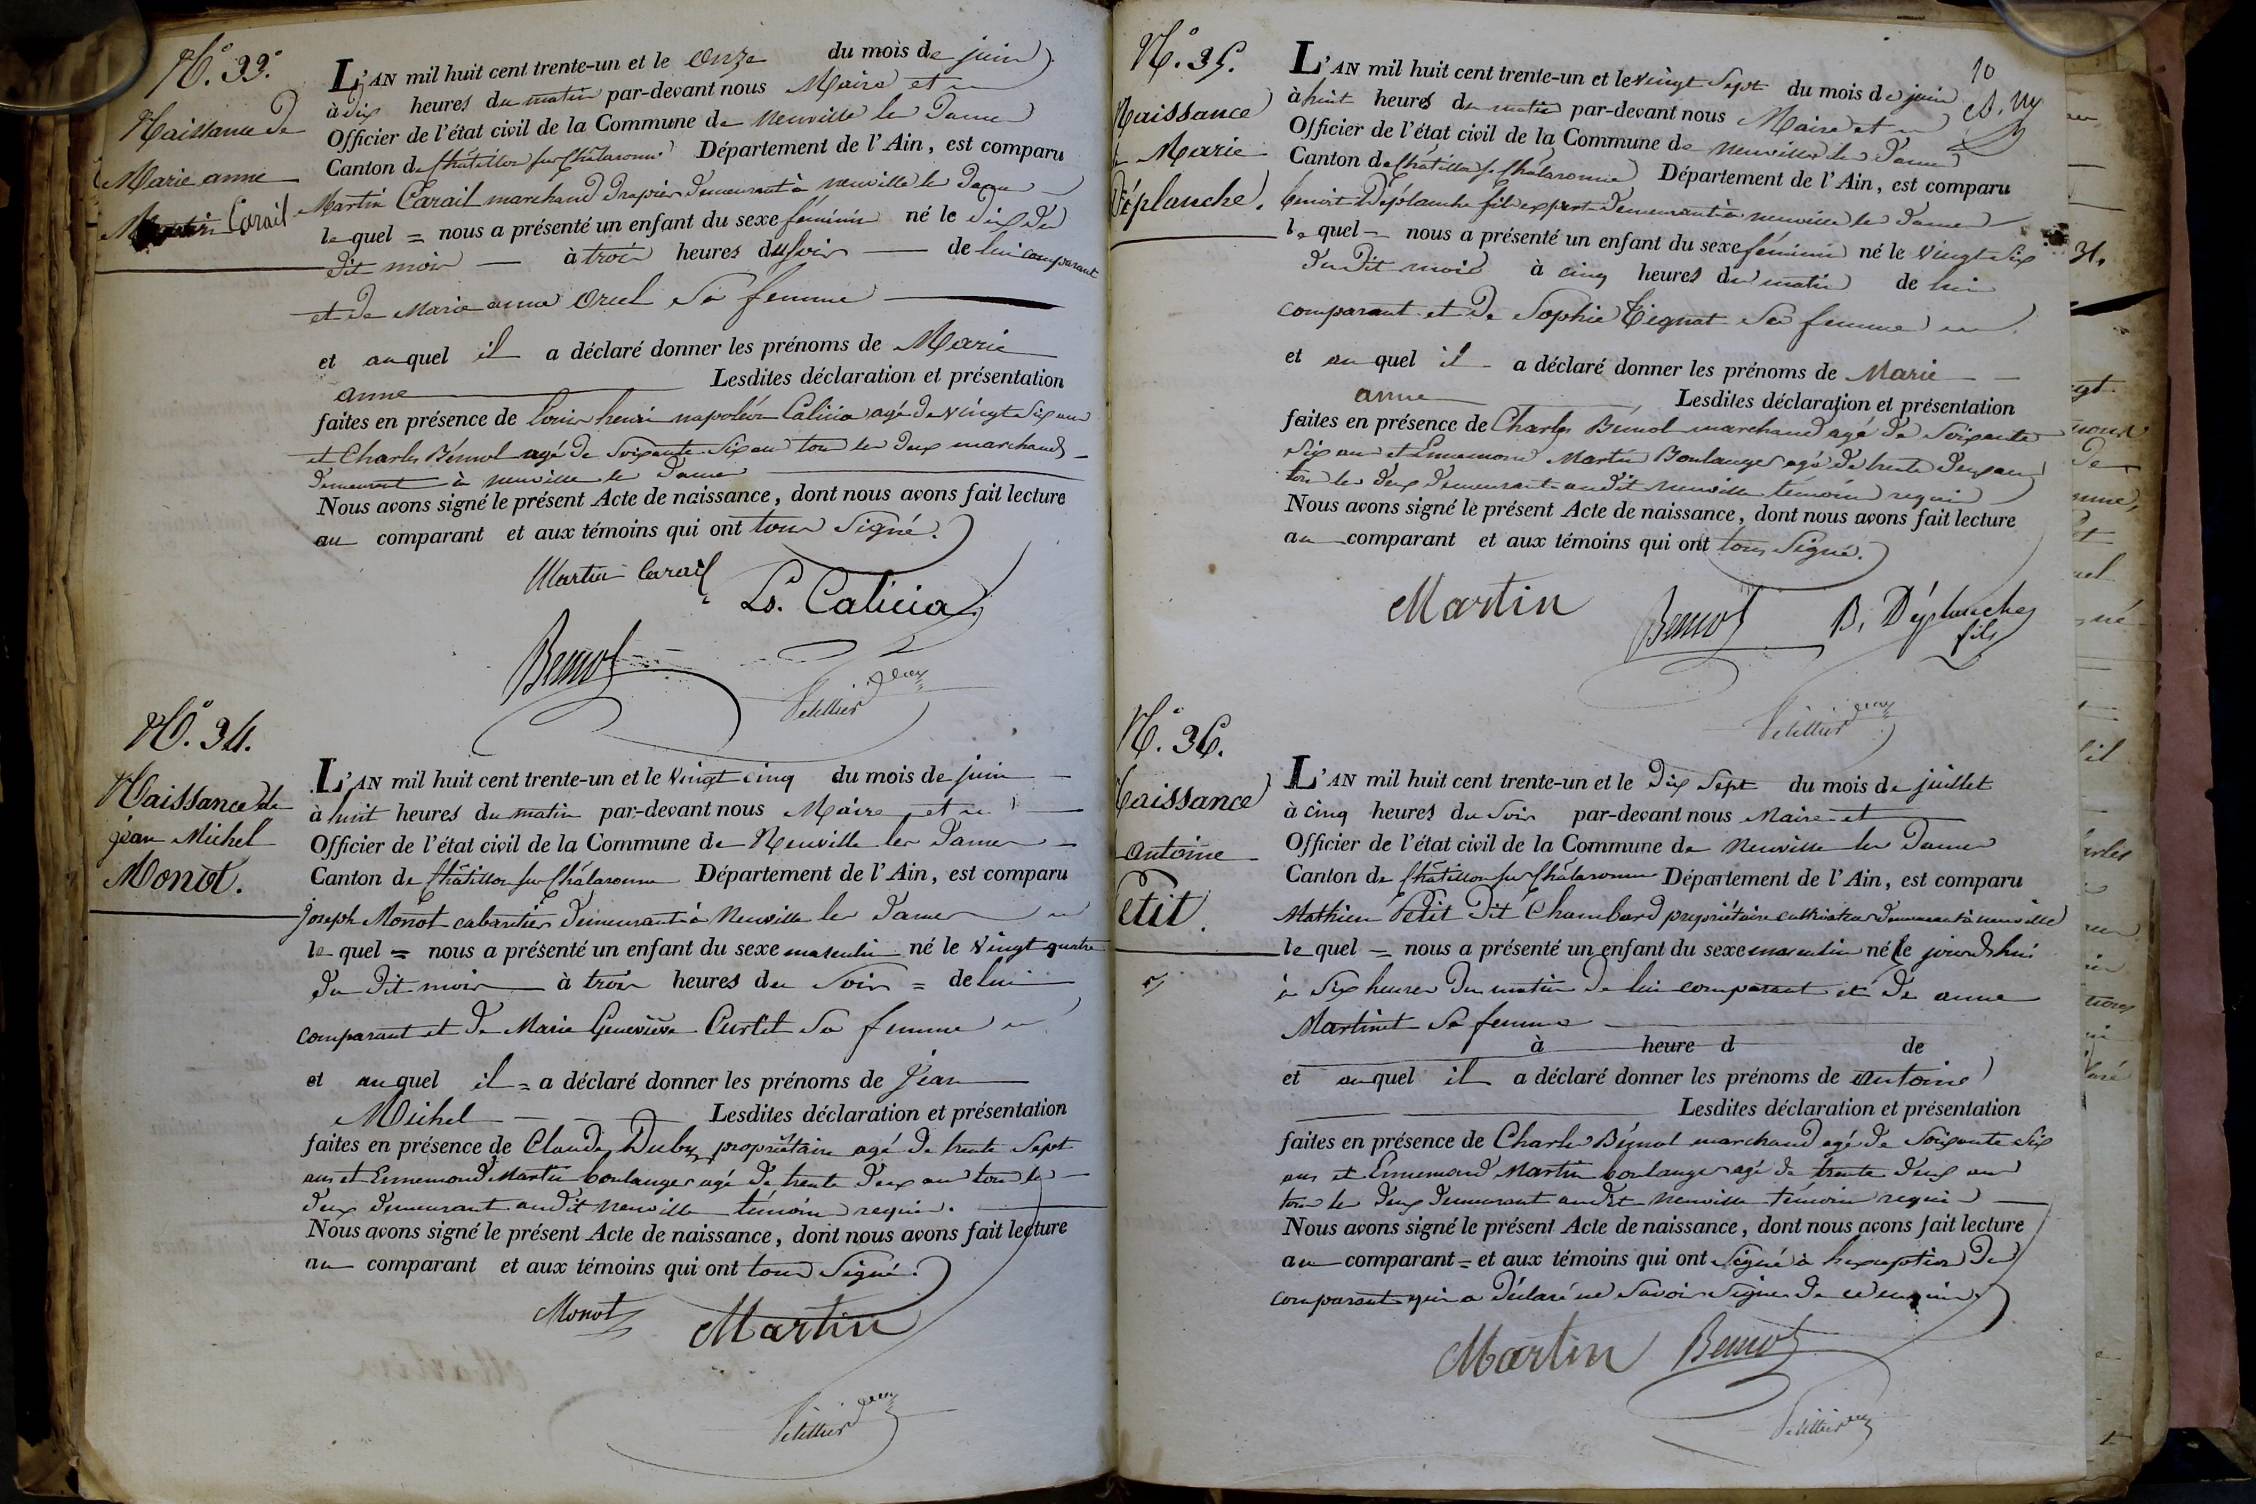 N.° 33.
Naissance de
Marie anne
Carail
L'AN mil huit cent trente-un et le onze du mois de juin
à dix heures du matin par-devant nous Maire et
Officier de l'état civil de la Commune de Neuville les Dames
Canton de Châtillon sur Chalaronne Département de l'Ain, est comparu
Martin Carail marchand drapier demeurant à neuville les dames
le quel = nous a présenté un enfant du sexe féminin né le dix du
dit mois à trois heures du soir de lui comparant
et de Marie anne Oruel sa femme
et auquel il a déclaré donner les prénoms de Marie
anne Lesdites déclaration et présentation
faites en présence de louis henri napoléon Calicia agé de vingt six ans
et Charles Bémol agé de soixante six ans tous les deux marchands
demeurant à neuville les dames
Nous avons signé le présent Acte de naissance, dont nous avons fait lecture
au comparant et aux témoins qui ont tous signé.
Martin Carail
Ls. Calicia
Bemol
N.° 34.
Naissance de
jean Michel
Monot.
L'AN mil huit cent trente-un et le vingt cinq du mois de juin
à huit heures du matin par-devant nous Maire et
Officier de l'état civil de la Commune de Neuville les Dames
Canton de Châtillon sur Chalaronne Département de l'Ain, est comparu
joseph Monot cabaretier demeurant à Neuville les dames
le quel = nous a présenté un enfant du sexe masculin né le vingt quatre
du dit mois à trois heures du soir = de lui
comparant et de Marie Geneviève Curtet sa femme
et auquel il = a déclaré donner les prénoms de Jean
Michel Lesdites déclaration et présentation
faites en présence de Claude Duby propriétaire agé de trente sept
ans et Ennemond Martin boulanger agé de trente deux ans tous les
deux demeurant audit neuville témoins requis.
Nous avons signé le présent Acte de naissance, dont nous avons fait lecture
au comparant et aux témoins qui ont tous signé.
Monot
Martin
N.° 35.
Naissance
Marie
Déplanche.
10
L'AN mil huit cent trente-un et le vingt sept du mois de juin
à huit heures du matin par-devant nous Maire et
Officier de l'état civil de la Commune de Neuville les Dames
Canton de Châtillon s. Chalaronne Département de l'Ain, est comparu
benoit Déplanche fils expert demeurant à neuville les dames
le quel nous a présenté un enfant du sexe féminin né le vingt six
du dit mois à cinq heures du matin de lui
comparant et de Sophie Tignat sa femme
et au quel il a déclaré donner les prénoms de Marie
anne Lesdites déclaration et présentation
faites en présence de Charles Bémol marchand agé de soixante
six ans et Ennemond Martin Boulanger agé de trente deux ans
tous les deux demeurant audit neuville témoins requis
Nous avons signé le présent Acte de naissance, dont nous avons fait lecture
au comparant et aux témoins qui ont tous signé.
Martin
Bemol
B. Déplanche
fils
N.° 36.
Naissance
antoine
Petit.
L'AN mil huit cent trente-un et le dix sept du mois de juillet
à cinq heures du soir par-devant nous Maire et
Officier de l'état civil de la Commune de Neuville les Dames
Canton de Châtillon sur Chalaronne Département de l'Ain, est comparu
Mathieu Petit dit Chambard propriétaire cultivateur demeurant à neuville
le quel = nous a présenté un enfant du sexe masculin né le jourd'hui
à six heures du matin de lui comparant et de anne
Martinet sa femme
à heure d de
et auquel il a déclaré donner les prénoms de antoine
Lesdites déclaration et présentation
faites en présence de Charles Bémol marchand agé de soixante six
ans et Ennemond Martin boulanger agé de trente deux ans
tous les deux demeurant audit neuville témoins requis
Nous avons signé le présent Acte de naissance, dont nous avons fait lecture
au comparant = et aux témoins qui ont signé à l'exception du
comparant qui a déclaré ne savoir signer de ce enquis.
Martin
Bemol